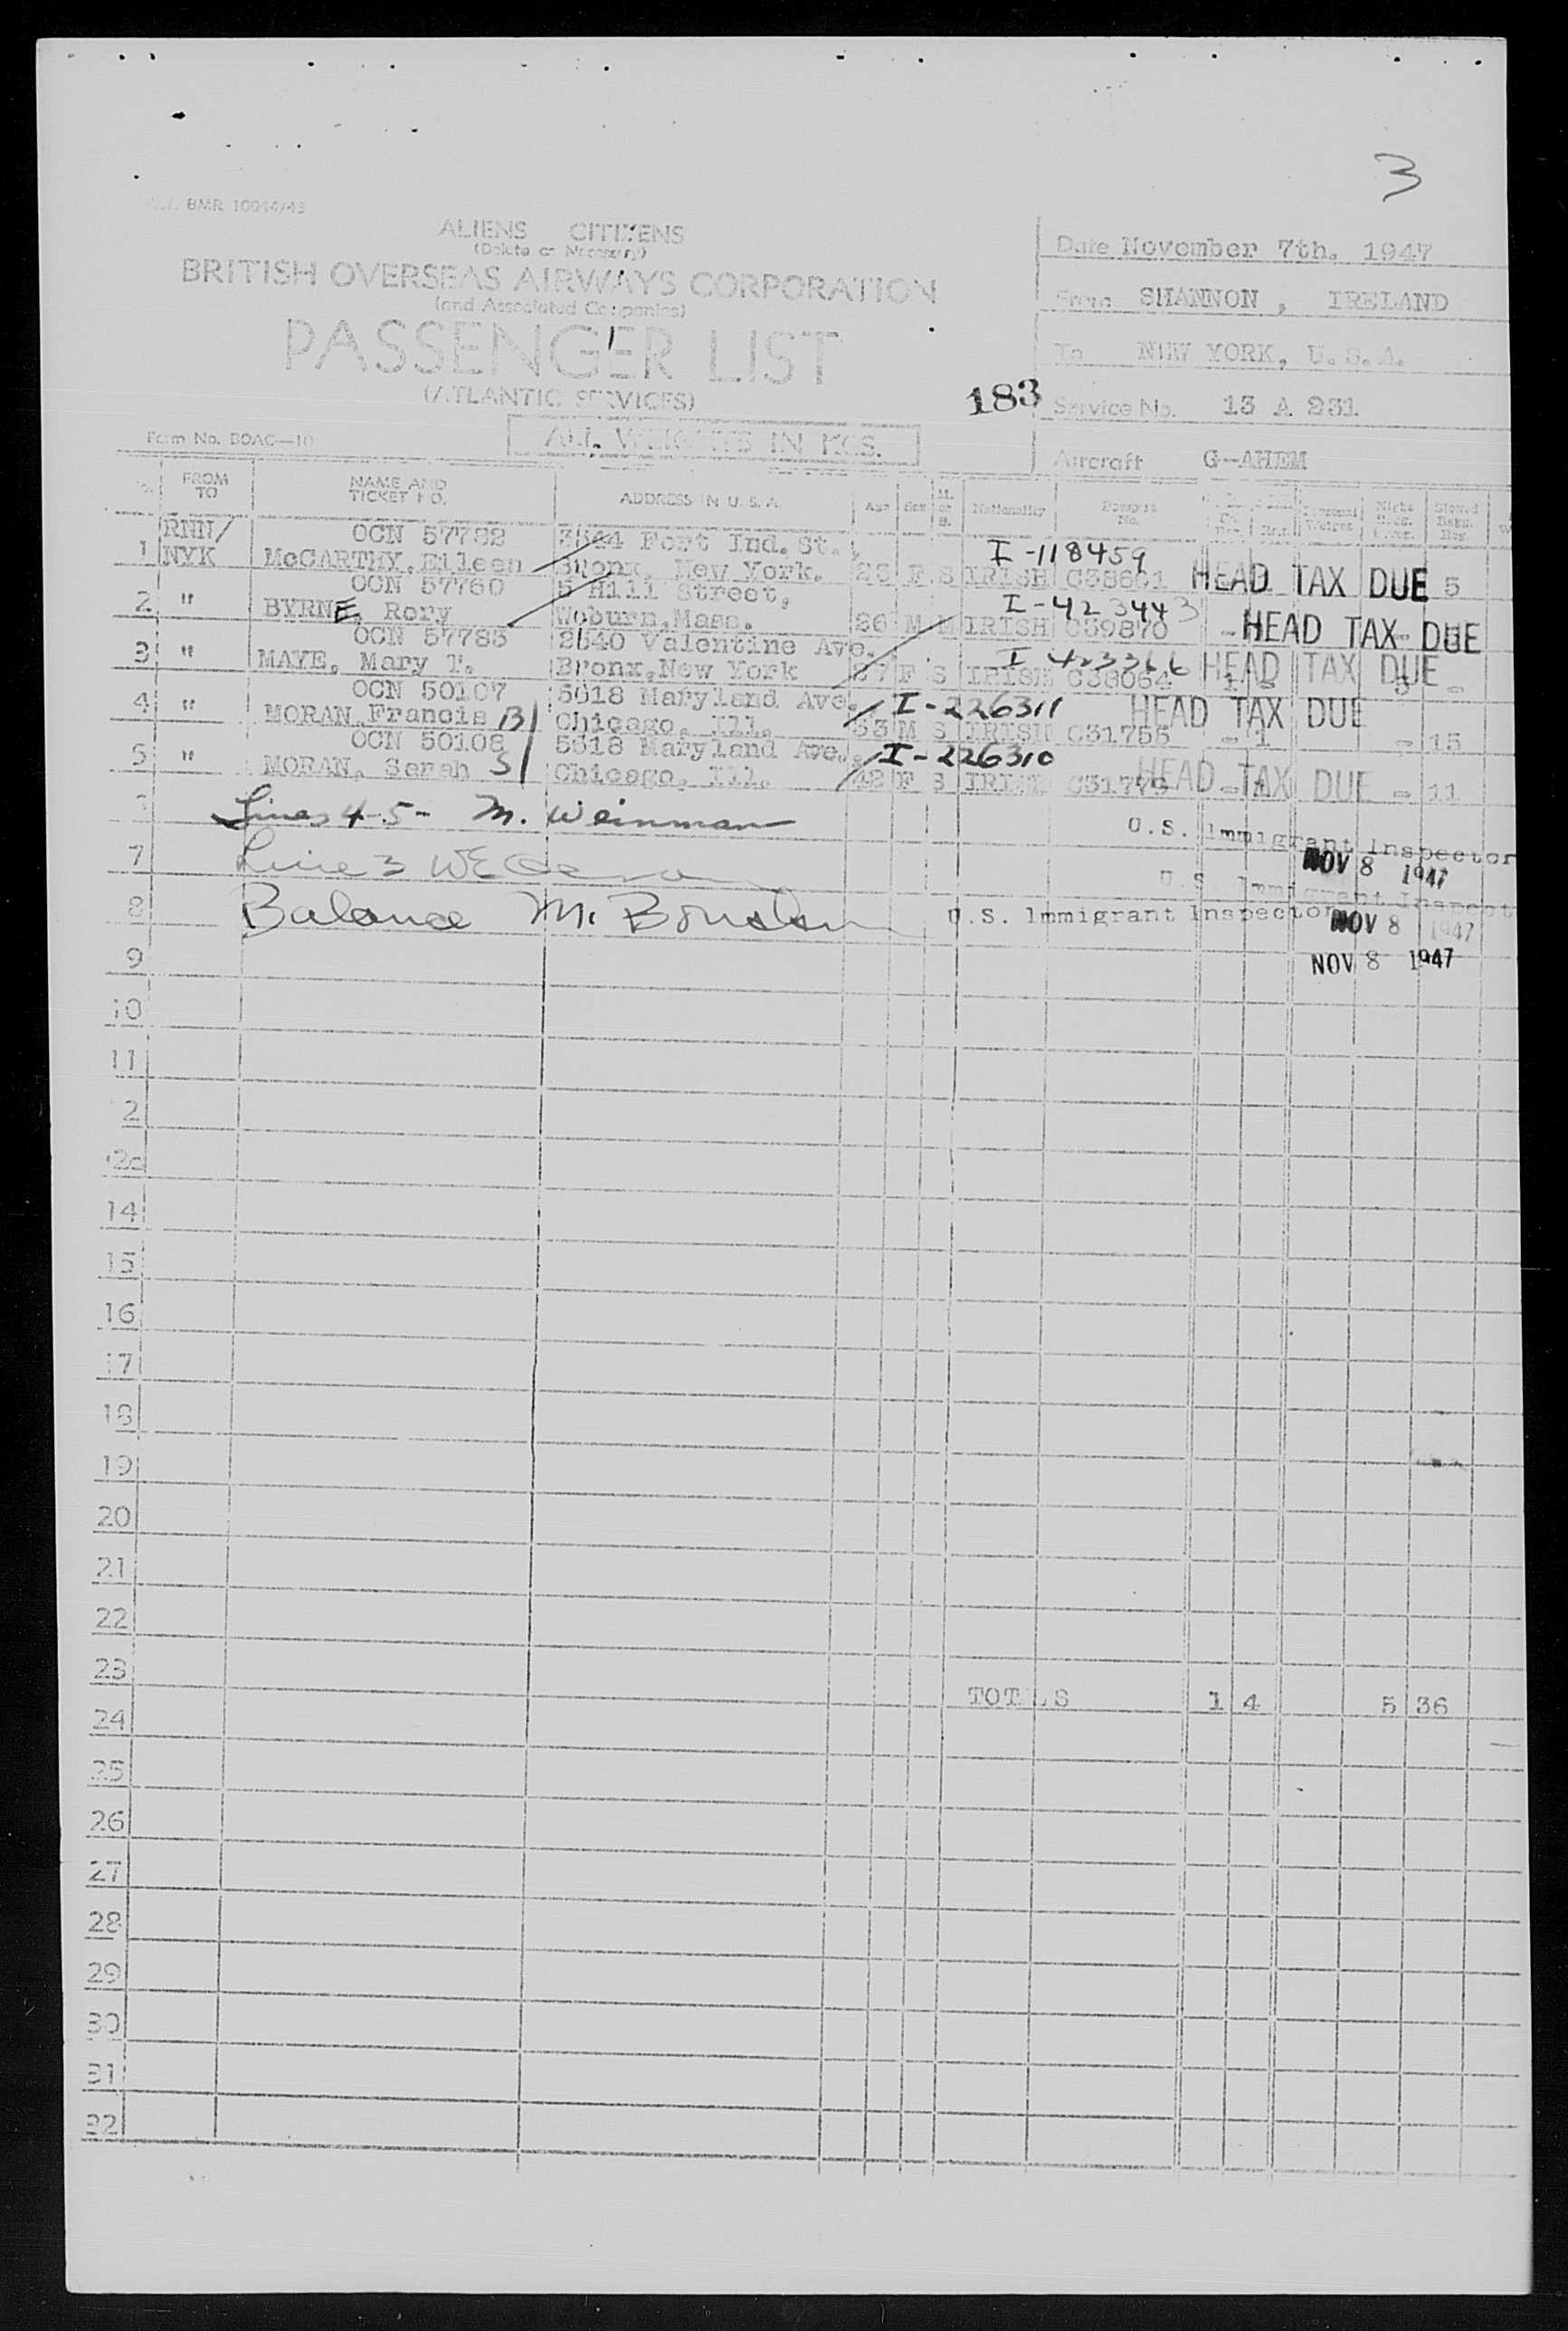 3
BMR 10044/43
ALIENS CITIZENS
(Delete as Necessary)
BRITISH OVERSEAS AIRWAYS CORPORATION
(and Associated Companies)
PASSENGER LIST
(ATLANTIC SERVICES)
Form No. BOAC-10
ALL WEIGHTS IN KGS.
183
Date November 7th. 1947
From SHANNON, IRELAND
To NEW YORK, U.S.A.
Service No. 13 A 231
Aircraft G-AHEM
FROM TO NAME AND TICKET NO. ADDRESS IN U.S.A. Age Sex M. or S. Nationality Passport No.
RNN/ OCN 57782 3544 Fort Ind. St.,
1 NYK McCARTHY, Eileen Bronx, New York. 25 F S IRISH I-118459 HEAD TAX DUE 5
OCN 57760 5 Hill Street,
2 " BYRNE, Rory Woburn, Mass. 26 M M IRISH C39870 I-423443 HEAD TAX DUE
OCN 57783 2540 Valentine Ave.
3 " MAYE, Mary T. Bronx, New York 27 F S IRISH C38064 I 423366 HEAD TAX DUE
OCN 50107 5618 Maryland Ave.
4 " MORAN, Francis B Chicago, Ill. 53 M S IRISH C31755 I-226311 HEAD TAX DUE - 1 - 15
OCN 50108 5618 Maryland Ave.
5 " MORAN, Sarah S Chicago, Ill. 42 F S IRISH I-226310 HEAD TAX DUE - 11
Lines 4-5- M. Weinman U.S. Immigrant Inspector
7 Line 3 NOV 8 1947
U.S. Immigrant Inspector
8 Balance M. U.S. Immigrant Inspector NOV 8 1947
9 NOV 8 1947
10
11
12
14
15
16
17
18
19
20
21
22
23
TOTALS 1 4 5 36
24
25
26
27
28
29
30
31
32